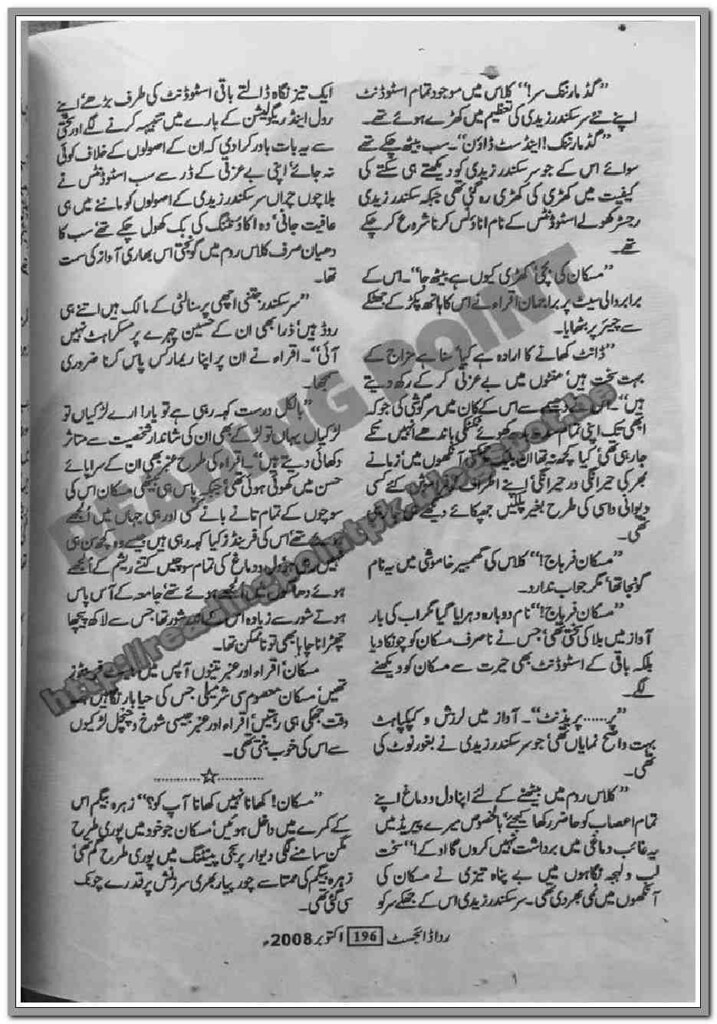 ”گڈ مارننگ سر!“ کلاس میں موجود تمام اسٹوڈنٹ
اپنے نئے سر سکندر زیدی کی تعظیم میں کھڑے ہوئے تھے۔
”گڈ مارننگ! اینڈ سٹ ڈاؤن“۔ سب بیٹھ چکے تھے
سوائے اس کے جو سر سکندر زیدی کو دیکھتے ہی سکتے کی
کیفیت میں کھڑی کی کھڑی رہ گئی تھی جبکہ سکندر زیدی
رجسٹر کھولے اسٹوڈنٹس کے نام اناؤنس کرنا شروع کر چکے
تھے۔
”مسکان کی بچی! کھڑی کیوں ہے بیٹھ جا“۔ اس کے
برابر والی سیٹ پر براجمان اقراء نے اس کا ہاتھ پکڑ کے جھٹکے
سے چیئر پر بٹھایا۔
”ڈانٹ کھانے کا ارادہ ہے کیا‘ سنا ہے مزاج کے
بہت سخت ہیں‘ منٹوں میں بے عزتی کر کے رکھ دیتے
ہیں“۔ اس نے دھیمے سے اس کے کان میں سرگوشی کی جو کہ
ابھی تک اپنی تمام کھوئے ٹکٹکی باندھے انہیں تکے
جا رہی تھی‘ کیا کچھ نہ تھا ان آنکھوں میں زمانے
بھر کی حیرانگی در حیرانگی‘ اپنے اطراف سے کئے کسی
دیوانی داسی کی طرح بغیر پلکیں جھپکائے دیکھے
تھی۔
”مسکان فرہاج!“ کلاس کی گھمبیر خاموشی میں یہ نام
گونجا تھا‘ مگر جواب ندارد۔
”مسکان فرہاج!“ نام دوبارہ دہرایا گیا مگر اب کی بار
آواز میں بلا کی سختی تھی‘ جس نے نا صرف مسکان کو چونکا دیا
بلکہ باقی کے اسٹوڈنٹ بھی حیرت سے مسکان کو دیکھنے
لگے۔
”پر...... پریذنٹ“۔ آواز میں لرزش و کپکپاہٹ
بہت واضح نمایاں تھی‘ جو سر سکندر زیدی نے بغور نوٹ کی
تھی۔
”کلاس روم میں بیٹھنے کے لئے اپنا دل و دماغ اپنے
تمام اعصاب کو حاضر رکھا کیجئے‘ بالخصوص میرے پیریڈ میں
یہ غائب دماغی میں برداشت نہیں کروں گا او کے!“ سخت
لب و لہجہ نگاہوں میں بے پناہ تیزی نے مسکان کی
آنکھوں میں نمی بھر دی تھی۔ سر سکندر زیدی اس کے جھکے سر کو
ایک تیز نگاہ ڈالتے باقی اسٹوڈنٹ کی طرف بڑھے‘ اپنے
رول اینڈ ریگولیشن کے بارے میں تنبیہہ کرنے لگے اور سختی
سے یہ بات باور کرا دی کہ ان کے اصولوں کے خلاف کوئی
نہ جائے‘ اپنی بے عزتی کے ڈر سے سب اسٹوڈنٹس نے
بلا چوں چراں سر سکندر زیدی کے اصولوں کو ماننے میں ہی
عافیت جانی‘ وہ اکاؤنٹنگ کی بک کھول چکے تھے سب کا
دھیان صرف کلاس روم میں گونجتی اس بھاری آواز کی سمت
تھا۔
”سر سکندر جتنی اچھی پرسنالٹی کے مالک ہیں اتنے ہی
روڈ ہیں‘ ذرا بھی ان کے حسین چہرے پر مسکراہٹ نہیں
آئی“۔ اقراء نے ان پر اپنا ریمارکس پاس کرنا ضروری
سمجھا۔
”بالکل درست کہہ رہی ہے تو یار! ارے لڑکیاں تو
لڑکیاں یہاں تو لڑکے بھی ان کی شاندار شخصیت سے متاثر
دکھائی دیتے ہیں“۔ اقراء کی طرح عنبر بھی ان کے سراپائے
حسن میں کھوئی ہوئی تھی‘ جبکہ پاس ہی بیٹھی مسکان اس کی
سوچوں کے تمام تانے بانے کسی اور ہی جہاں میں الجھے
تھے‘ اس کی فرینڈز کیا کہہ رہی ہیں جیسے وہ کچھ سن ہی
نہیں رہی دل و دماغ کی تمام سوچیں کتنے ریشم کے الجھے
ہوئے دھاگوں میں الجھے ہوئے تھے‘ جامعہ کے آس پاس
ہوتے شور سے زیادہ اس کے شور تھا جس سے لاکھ پیچھا
چھڑانا چاہا بھی تو ناممکن تھا۔
مسکان‘ اقراء اور عنبر تینوں آپس میں فرینڈز
تھیں‘ مسکان معصوم سی شرمیلی جس کی حیا بار نگاہیں
وقت جھکی ہی رہتیں‘ اقراء اور عنبر جیسی شوخ و چنچل لڑکیوں
سے اس کی خوب بنتی تھی۔
............☆............
”مسکان! کھانا نہیں کھانا آپ کو؟“ زہرہ بیگم اس
کے کمرے میں داخل ہوئیں‘ مسکان جو خود میں پوری طرح
مگن سامنے لگی دیوار پر سجی پینٹنگ میں پوری طرح گم تھی‘
زہرہ بیگم کی ممتا سے چور پیار بھری سرزنش پر قدرے چونک
سی گئی تھی۔
ردا ڈائجسٹ 196 اکتوبر 2008ء
READING POINT